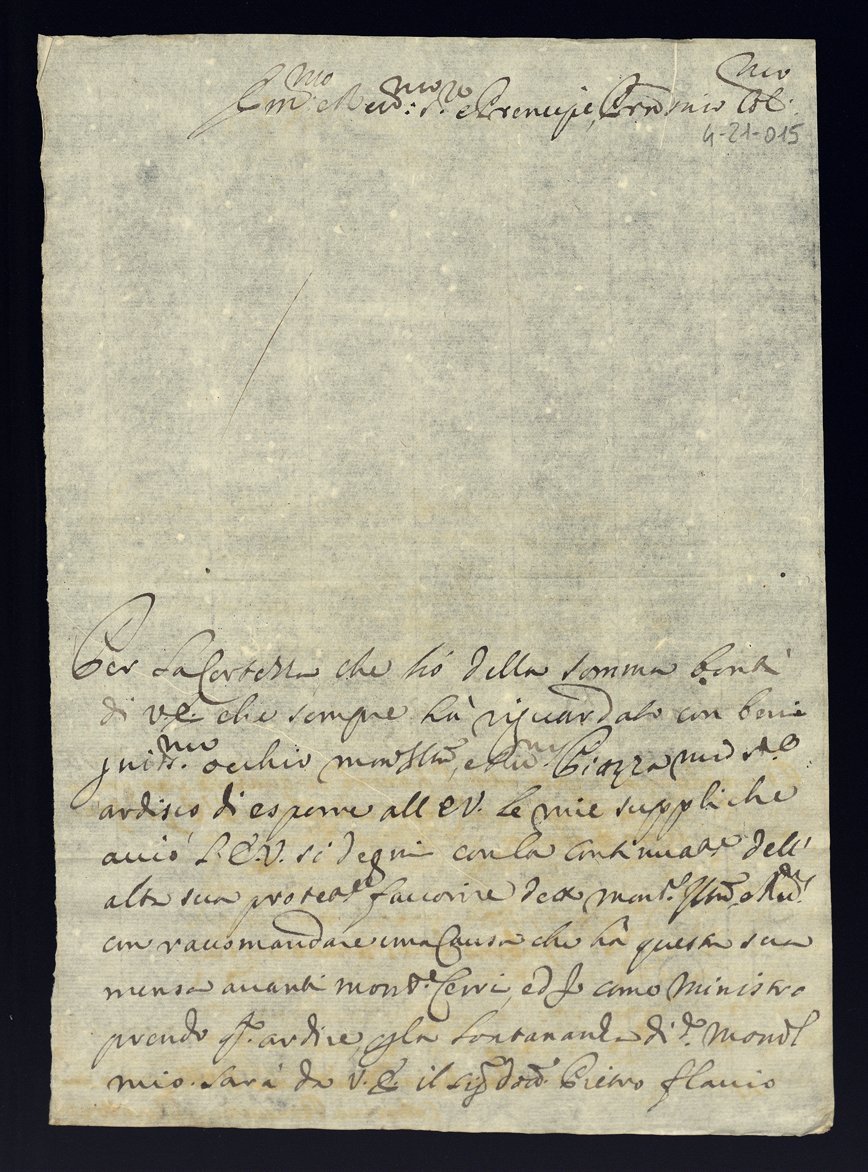 Em.mo e Rev.mo Sig.re e Prencipe, P̃rone mio Col.mo
4-21-015
Per la Certezza che hò della somma bontà
di V.E. che sempre hà riguardato con beni
gniss.mo occhio mons. Ill.mo, e R.mo Piazza mio Sig.re
ardisco di esporre all E.V. le mie suppliche
acciò l'E.V. si degni con la continuaz.e dell'
alta sua protez.e favorire detto mons.re Ill.mo e Rev.mo
con raccomandare una Causa che hà questa sua
mensa avanti mons.re Cerri, ed Io como Ministro
prendo q.to ardire p la lontananza di d.o mons.
mio. Sarà da V.E. il Sig. Dott. Pietro flavio